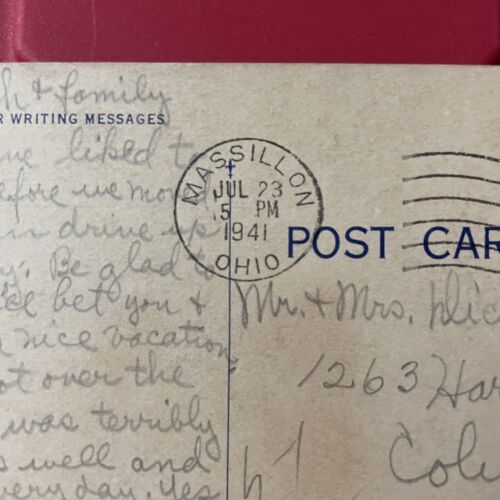 h & family
R WRITING MESSAGES
ve liked t
efore we moved
drive up
y. Be glad t
bet you &
nice vacation
ot over the
was terribly
s well and
very day. Yes
MASSILLON
JUL 23
5 PM
1941
OHIO
POST CAR
Mr. & Mrs. Dic
1263 Har
Colu